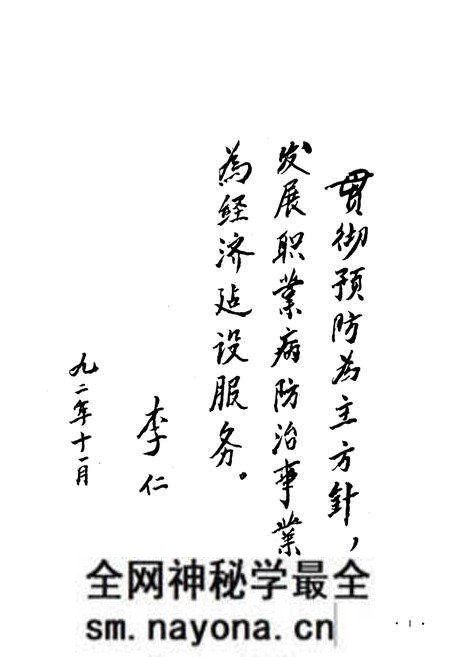 贯彻预防为主方針，
发展职業病防治事業
為经济建设服务。
李仁
九二年十一月
全网神秘学最全
sm.nayona.cn
·1·